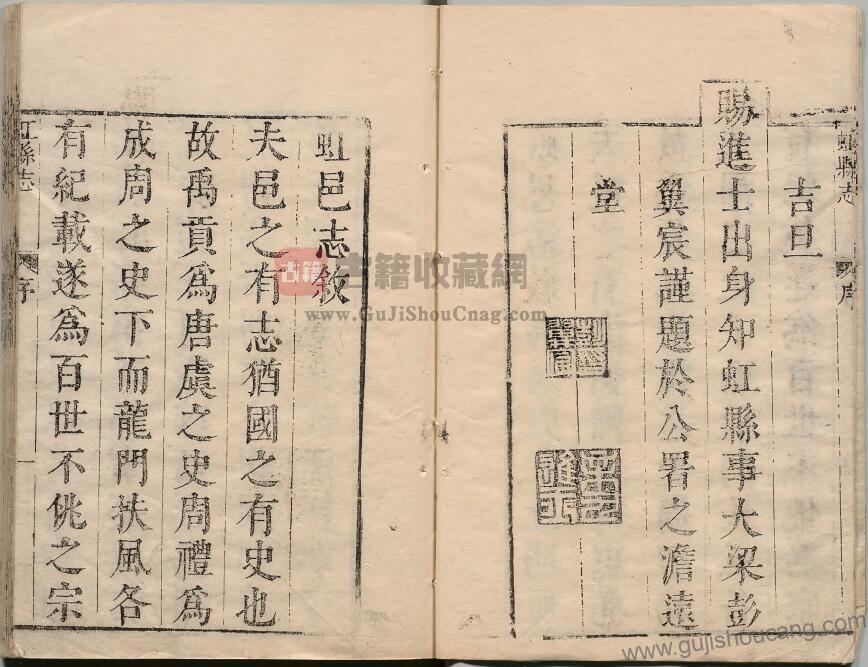 虹縣志
序
吉旦
賜進士出身知虹縣事大梁彭
翼宸謹題於公署之澹遠
堂
虹邑志敘
夫邑之有志猶國之有史也
故禹貢爲唐虞之史周禮爲
成周之史下而龍門扶風各
有紀載遂爲百世不佻之宗
縣志
序
一
古籍
古籍收藏網
www.GuJiShouCnag.com
www.gujishoucang.com